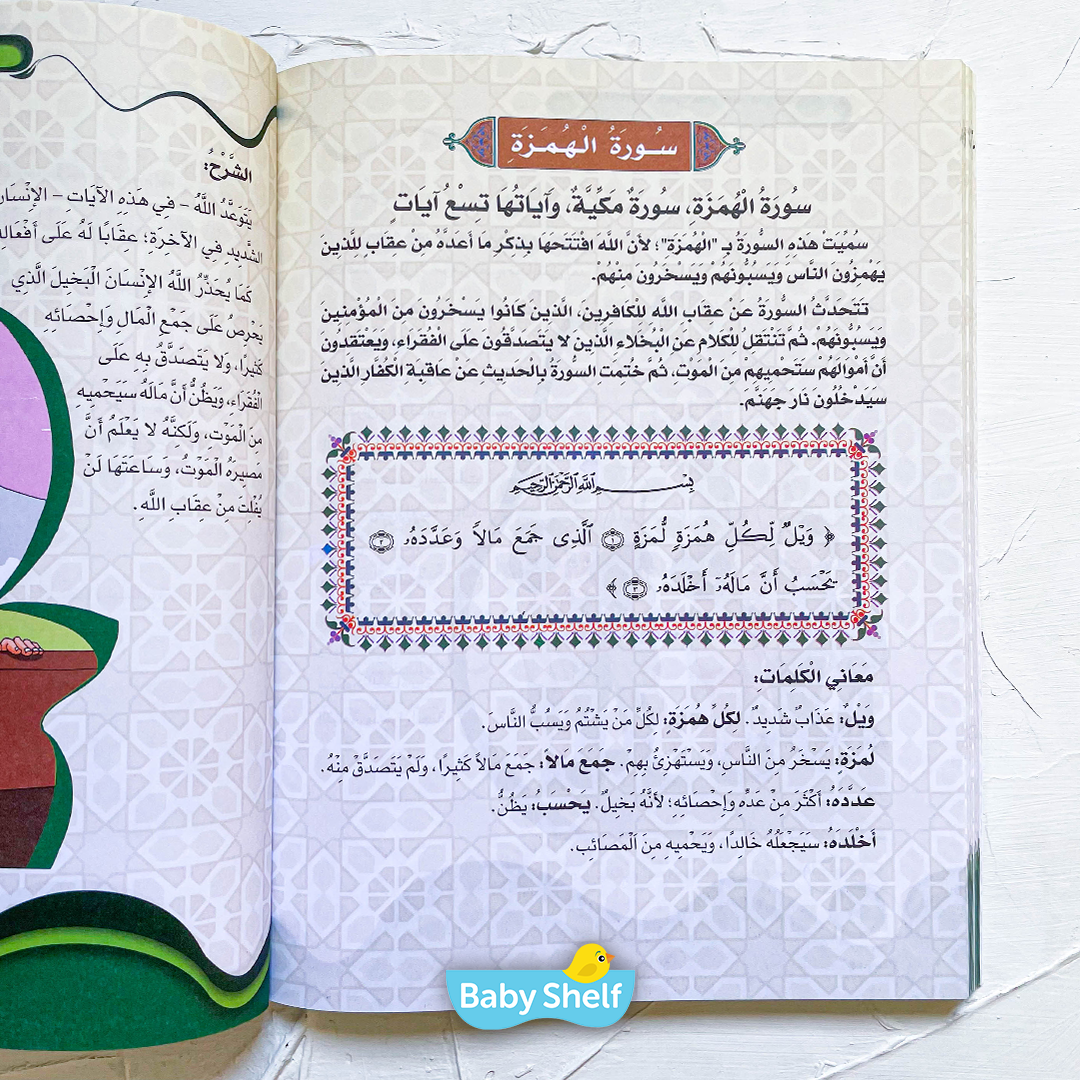 سُورَةُ الْهُمَزَةِ
سُورَةُ الْهُمَزَة، سُورَةٌ مَكِّيَّةٌ، وَآيَاتُهَا تِسْعُ آيَاتٍ
سُمِّيَتْ هَذِهِ السُّورَةُ بِـ "الْهُمَزَة"؛ لأَنَّ اللهَ افْتَتَحَهَا بِذِكْرِ مَا أَعَدَّهُ مِنْ عِقَابٍ لِلَّذِينَ
يَهْمِزُونَ النَّاسَ وَيَسُبُّونَهُمْ وَيَسْخَرُونَ مِنْهُمْ.
تَتَحَدَّثُ السُّورَةُ عَنْ عِقَابِ اللهِ لِلْكَافِرِينَ، الَّذِينَ كَانُوا يَسْخَرُونَ مِنَ الْمُؤْمِنِينَ
وَيَسُبُّونَهُمْ. ثُمَّ تَنْتَقِلُ لِلْكَلامِ عَنِ الْبُخَلاءِ الَّذِينَ لا يَتَصَدَّقُونَ عَلَى الْفُقَرَاءِ، وَيَعْتَقِدُونَ
أَنَّ أَمْوَالَهُمْ سَتَحْمِيهِمْ مِنَ الْمَوْتِ، ثُمَّ خُتِمَتِ السُّورَةُ بِالْحَدِيثِ عَنْ عَاقِبَةِ الْكُفَّارِ الَّذِينَ
سَيَدْخُلُونَ نَارَ جَهَنَّمَ.
بِسْمِ اللَّهِ الرَّحْمَنِ الرَّحِيمِ
﴿ وَيْلٌ لِّكُلِّ هُمَزَةٍ لُّمَزَةٍ ١ ٱلَّذِى جَمَعَ مَالاً وَعَدَّدَهُۥ ٢
يَحْسَبُ أَنَّ مَالَهُۥٓ أَخْلَدَهُۥ ٣ ﴾
مَعَانِي الْكَلِمَاتِ:
وَيْلٌ: عَذَابٌ شَدِيدٌ. لِكُلِّ هُمَزَةٍ: لِكُلِّ مَنْ يَشْتُمُ وَيَسُبُّ النَّاسَ.
لُمَزَةٍ: يَسْخَرُ مِنَ النَّاسِ، وَيَسْتَهْزِئُ بِهِمْ. جَمَعَ مَالاً: جَمَعَ مَالاً كَثِيرًا، وَلَمْ يَتَصَدَّقْ مِنْهُ.
عَدَّدَهُ: أَكْثَرَ مِنْ عَدِّهِ وَإِحْصَائِهِ؛ لأَنَّهُ بَخِيلٌ. يَحْسَبُ: يَظُنُّ.
أَخْلَدَهُ: سَيَجْعَلُهُ خَالِدًا، وَيَحْمِيهِ مِنَ الْمَصَائِبِ.
الشَّرْحُ:
يَتَوَعَّدُ اللَّهُ - فِي هَذِهِ الآيَاتِ - الإِنْسَانَ
الشَّدِيدِ فِي الآخِرَةِ؛ عِقَابًا لَهُ عَلَى
كَمَا يُحَذِّرُ اللَّهُ الإِنْسَانَ الْبَخِيلَ الَّذِي
يَحْرِصُ عَلَى جَمْعِ الْمَالِ وَإِحْصَائِهِ
كَثِيرًا، وَلا يَتَصَدَّقُ بِهِ عَلَى
الْفُقَرَاءِ، وَيَظُنُّ أَنَّ مَالَهُ سَيَحْمِيهِ
مِنَ الْمَوْتِ، وَلَكِنَّهُ لا يَعْلَمُ أَنَّ
مَصِيرَهُ الْمَوْتُ، وَسَاعَتَهَا لَنْ
يُفْلِتَ مِنْ عِقَابِ اللَّهِ.
Baby Shelf